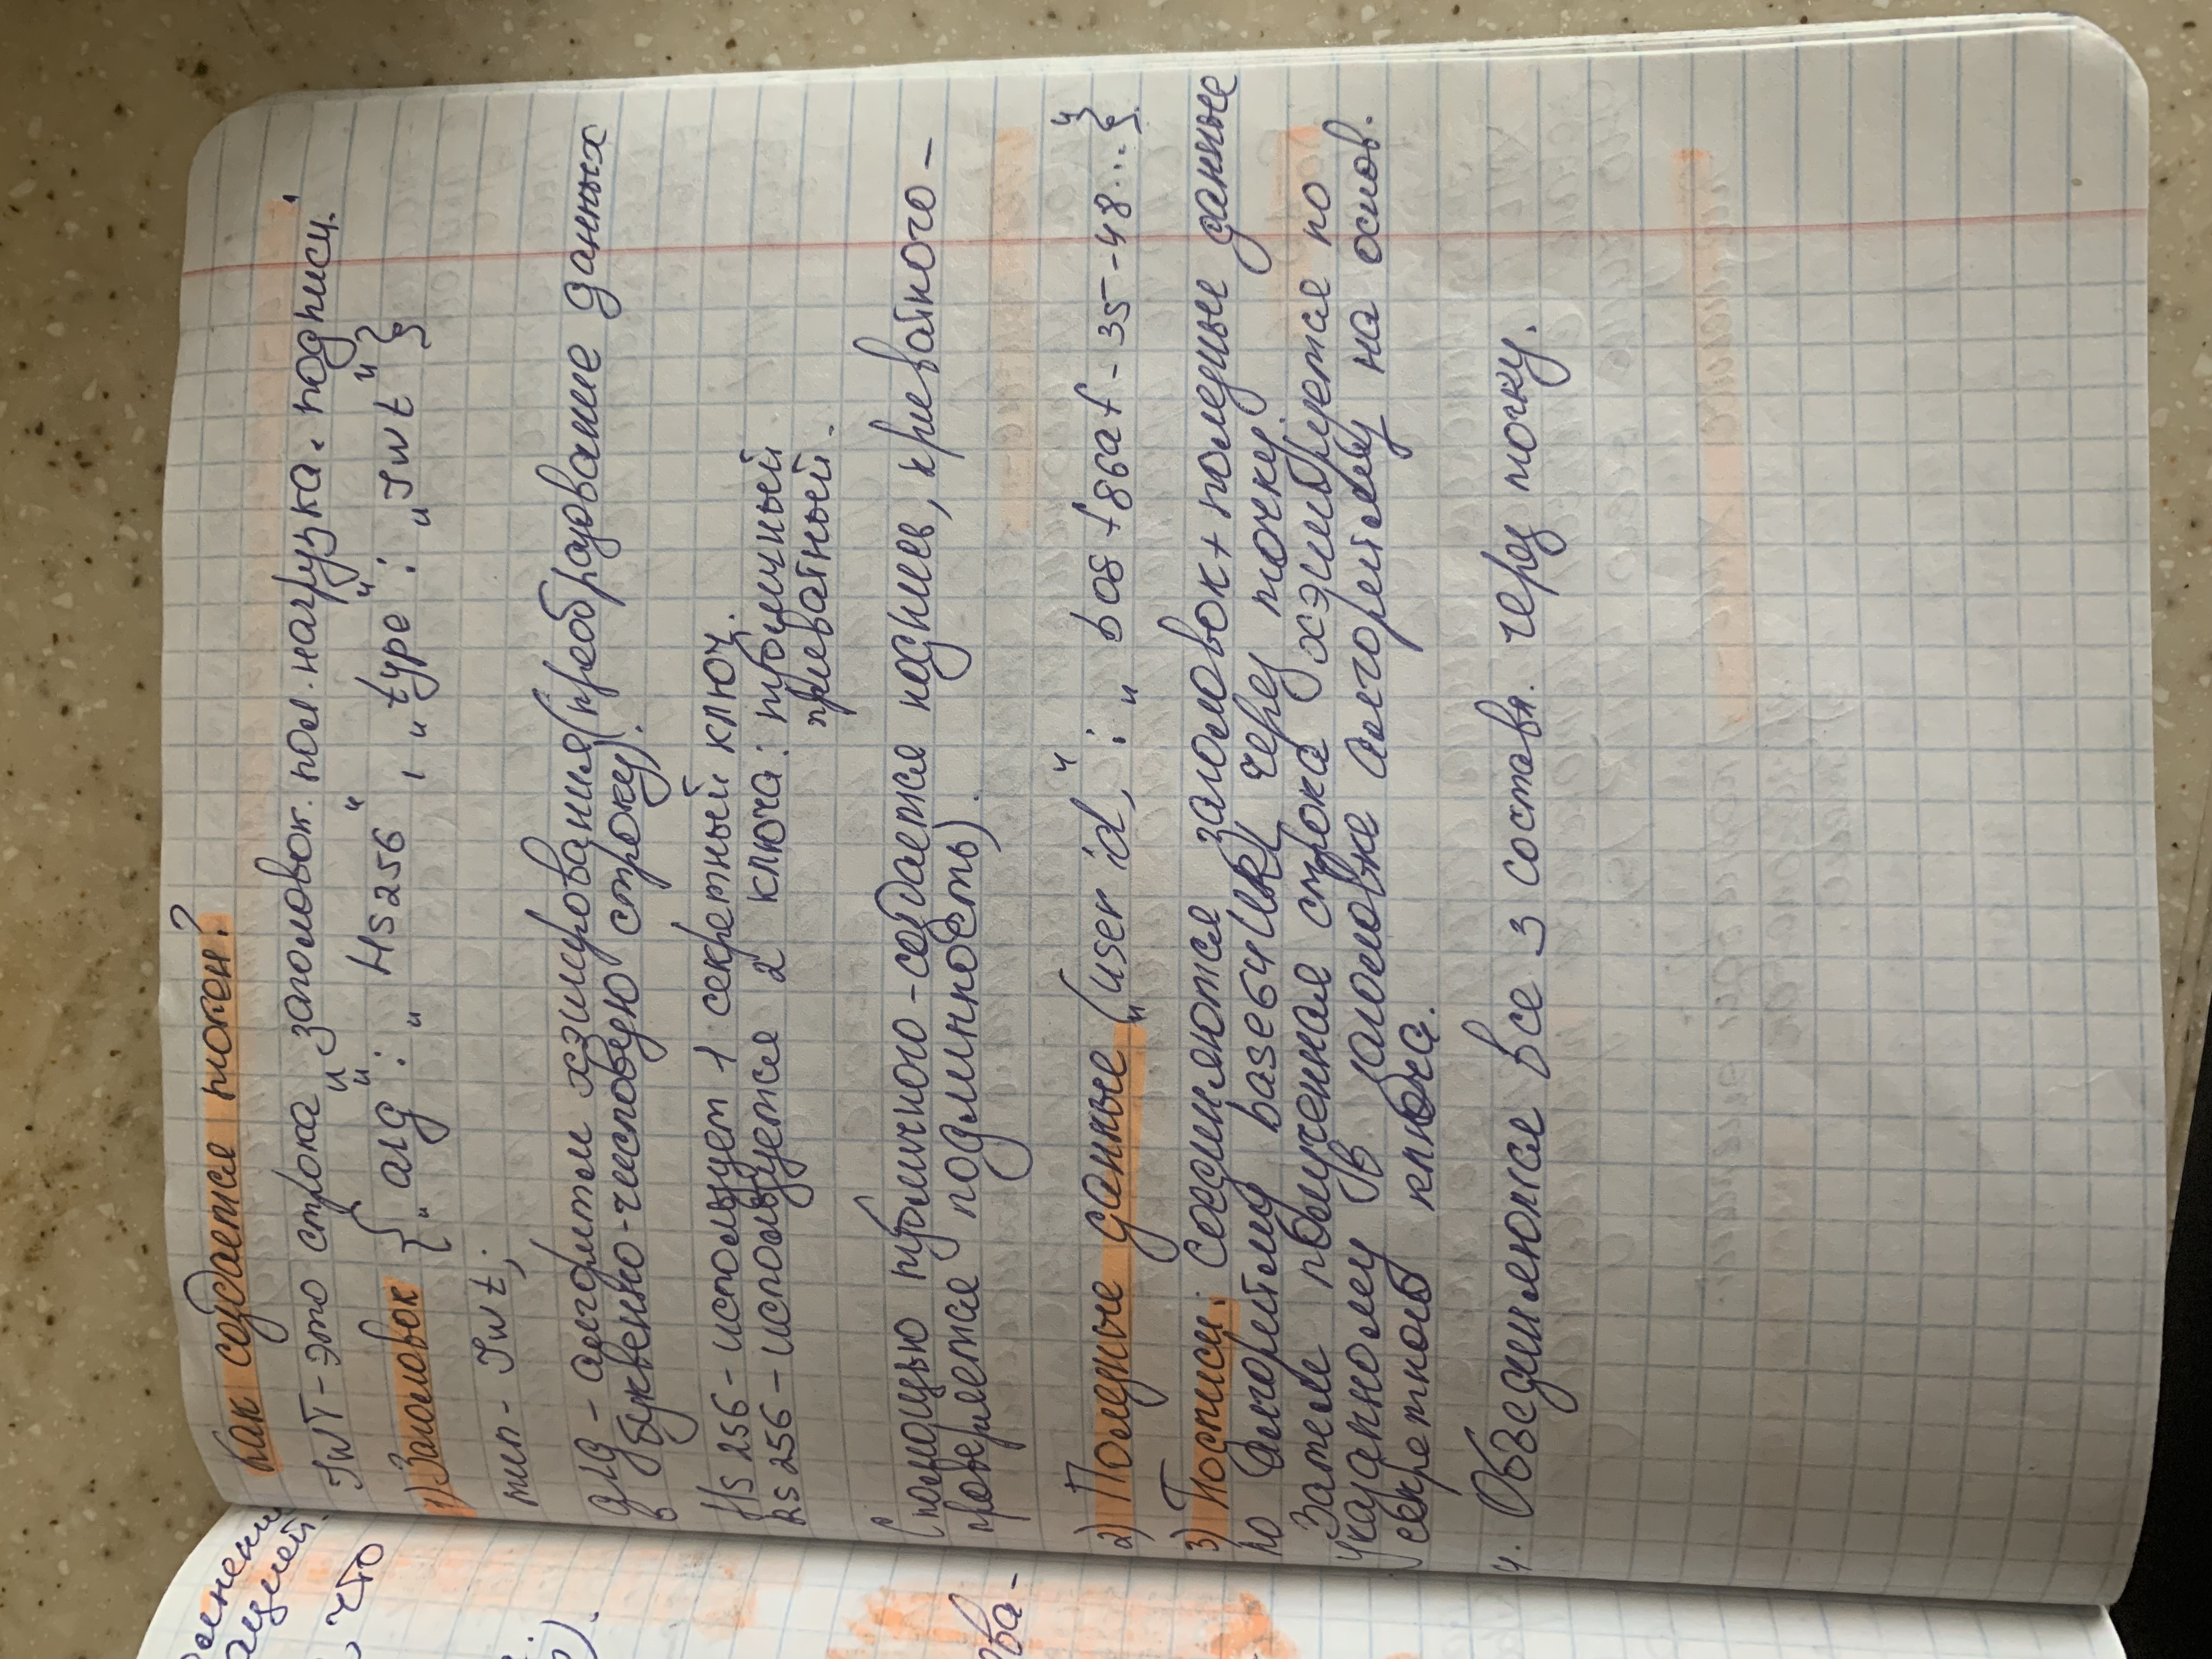 олнени
ацией.
, что
ева-
Как создается токен?
JWT - это строка „заголовок. пол. нагрузка. подписи."
1) Заголовок {„alg": „HS256", „type": „Jwt"}
тип - Jwt;
alg - алгоритм хэширования (преобразование данных
в буквенно-числовую строку).
HS 256 - использует 1 секретный ключ.
RS 256 - используется 2 ключа: публичный
приватный.
(помощью публичного - создается подпись, приватного -
проверяется подлинность).
2) Полезные данные („user id," : „ b08 f86af - 35 - 48..."}
3) Подписи: Соединяются заголовок + полезные данные
по алгоритму base64URL через точку.
Затем полученная строка хэшируется по
указанному в заголовке алгоритму на основ.
секретного ключа.
4. Объединяются все 3 составл. через точку.